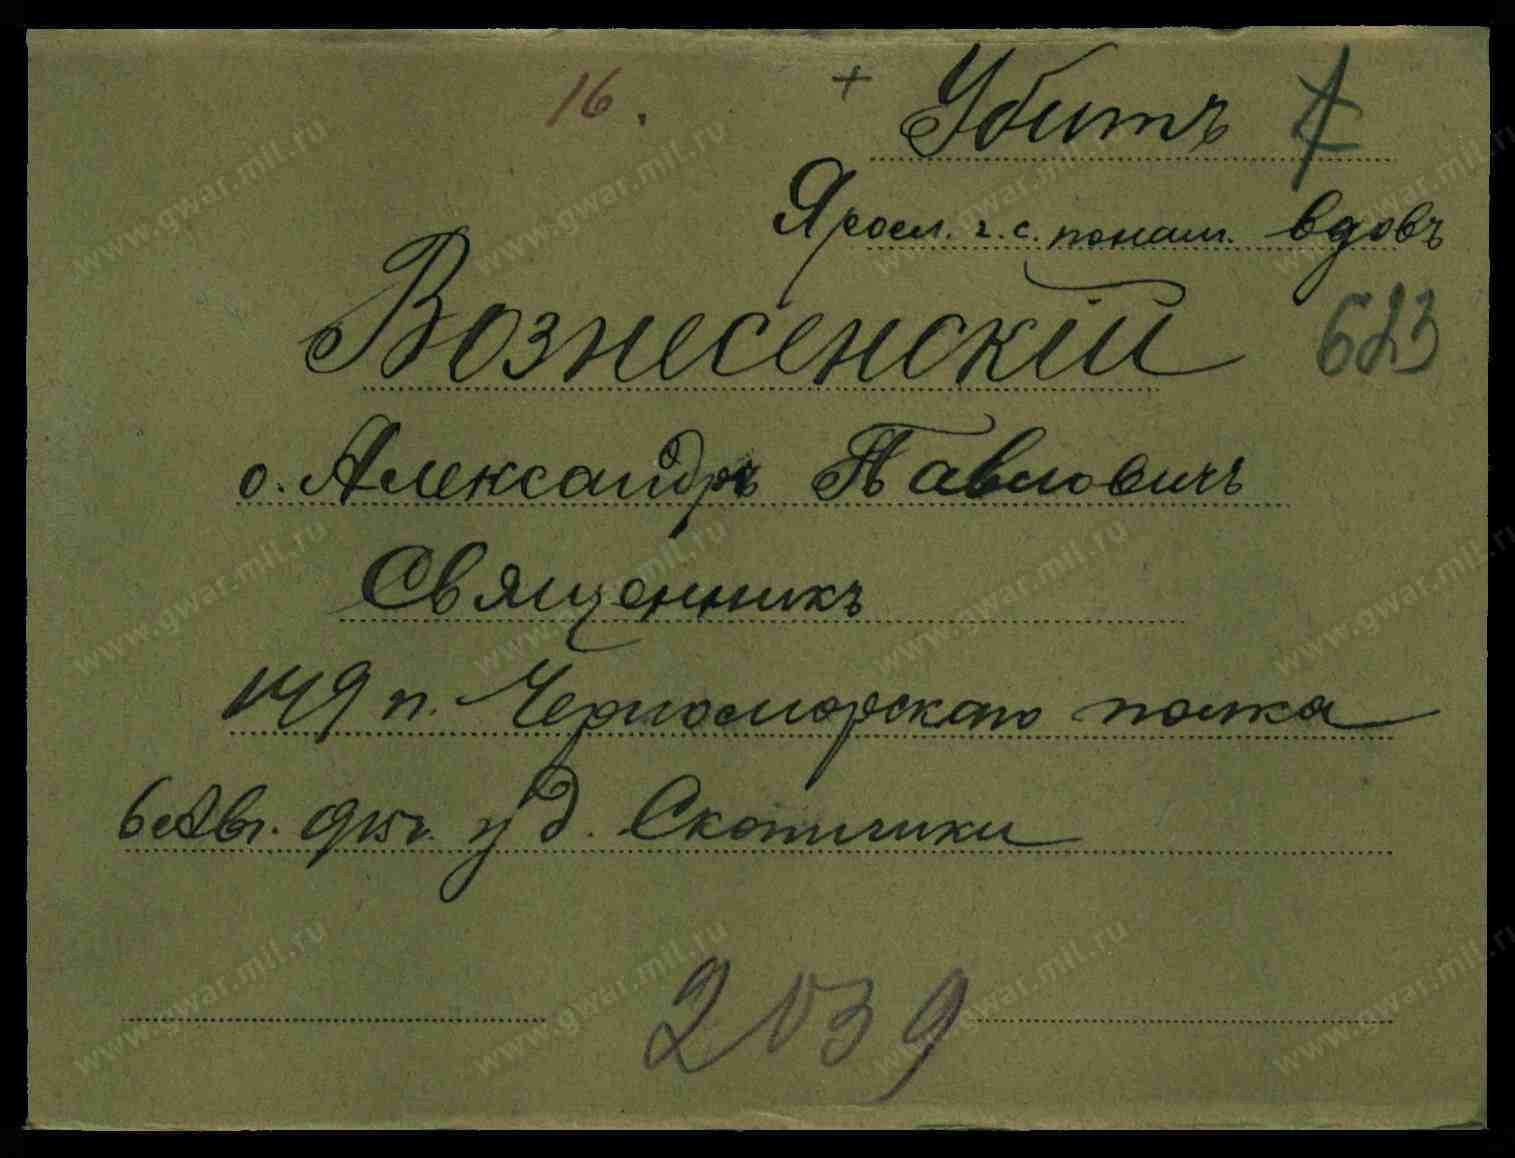 16. + Убитъ
Яросл. г. с. понам. вдовъ
Вознесенскій 623
о. Александръ Павловичъ
Священникъ
149 п. Черноморскаго полка
6 Авг. 915 г. у д. Скотички
2039
www.gwar.mil.ru